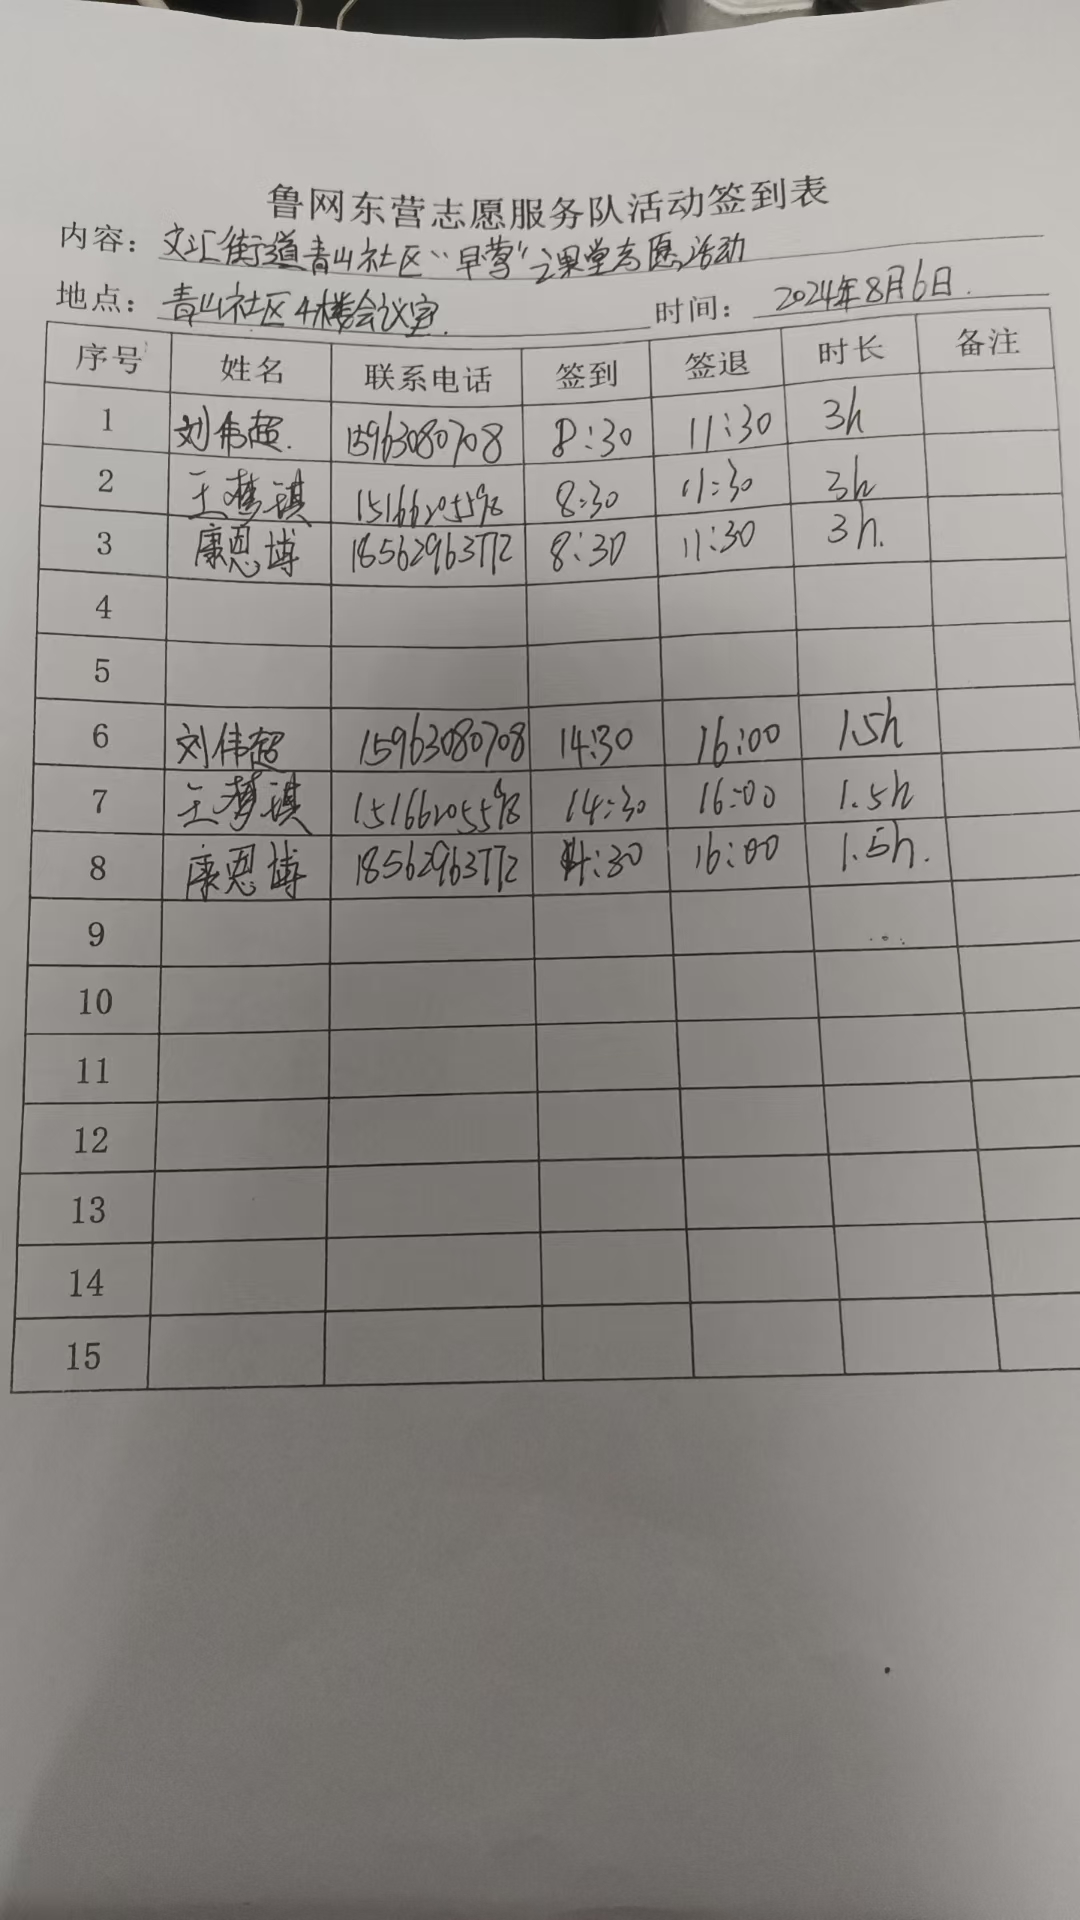 鲁网东营志愿服务队活动签到表
内容：文汇街道青山社区“早莺”之课堂志愿活动
地点：青山社区4楼会议室. 时间：2024年8月6日.
序号 姓名 联系电话 签到 签退 时长 备注
1 刘伟超. 15963080708 8:30 11:30 3h
2 王梦琪 15166205598 8:30 11:30 3h
3 康恩博 18562963772 8:30 11:30 3h.
4
5
6 刘伟超 15963080708 14:30 16:00 1.5h
7 王梦琪 15166205598 14:30 16:00 1.5h
8 康恩博 18562963772 14:30 16:00 1.5h.
9
10
11
12
13
14
15